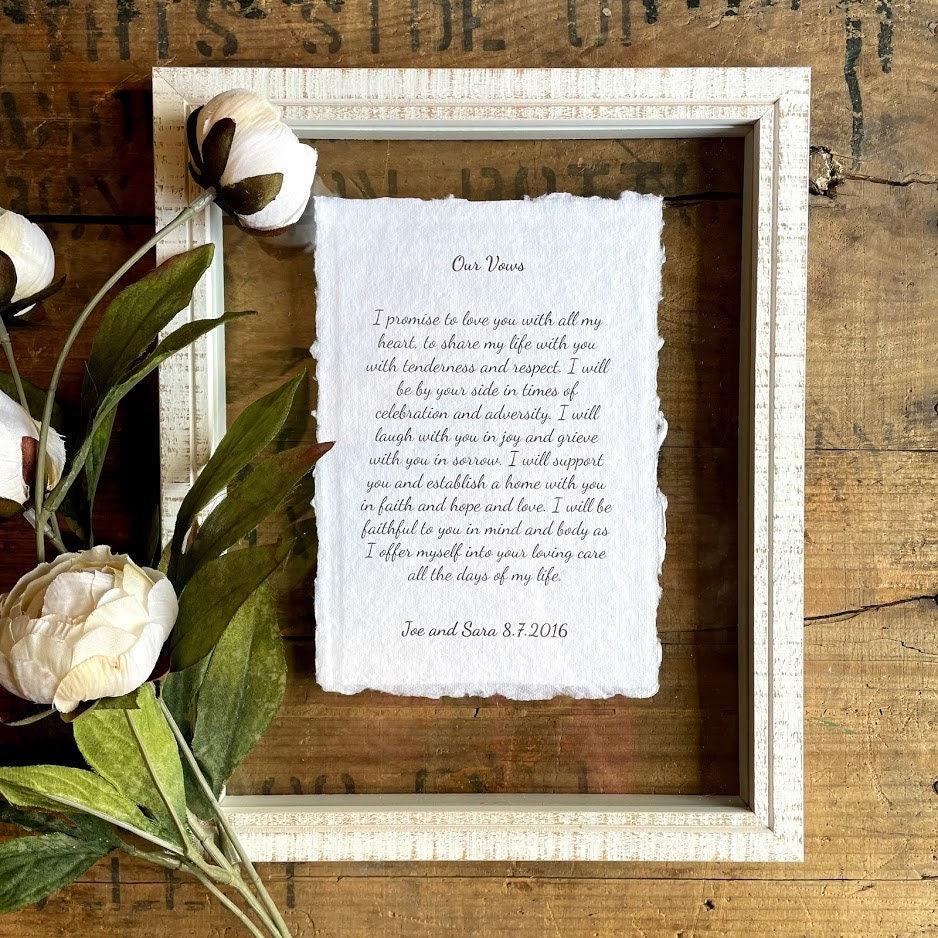 THIS SIDE UP
Our Vows
I promise to love you with all my
heart, to share my life with you
with tenderness and respect. I will
be by your side in times of
celebration and adversity. I will
laugh with you in joy and grieve
with you in sorrow. I will support
you and establish a home with you
in faith and hope and love. I will be
faithful to you in mind and body as
I offer myself into your loving care
all the days of my life.
Joe and Sara 8.7.2016